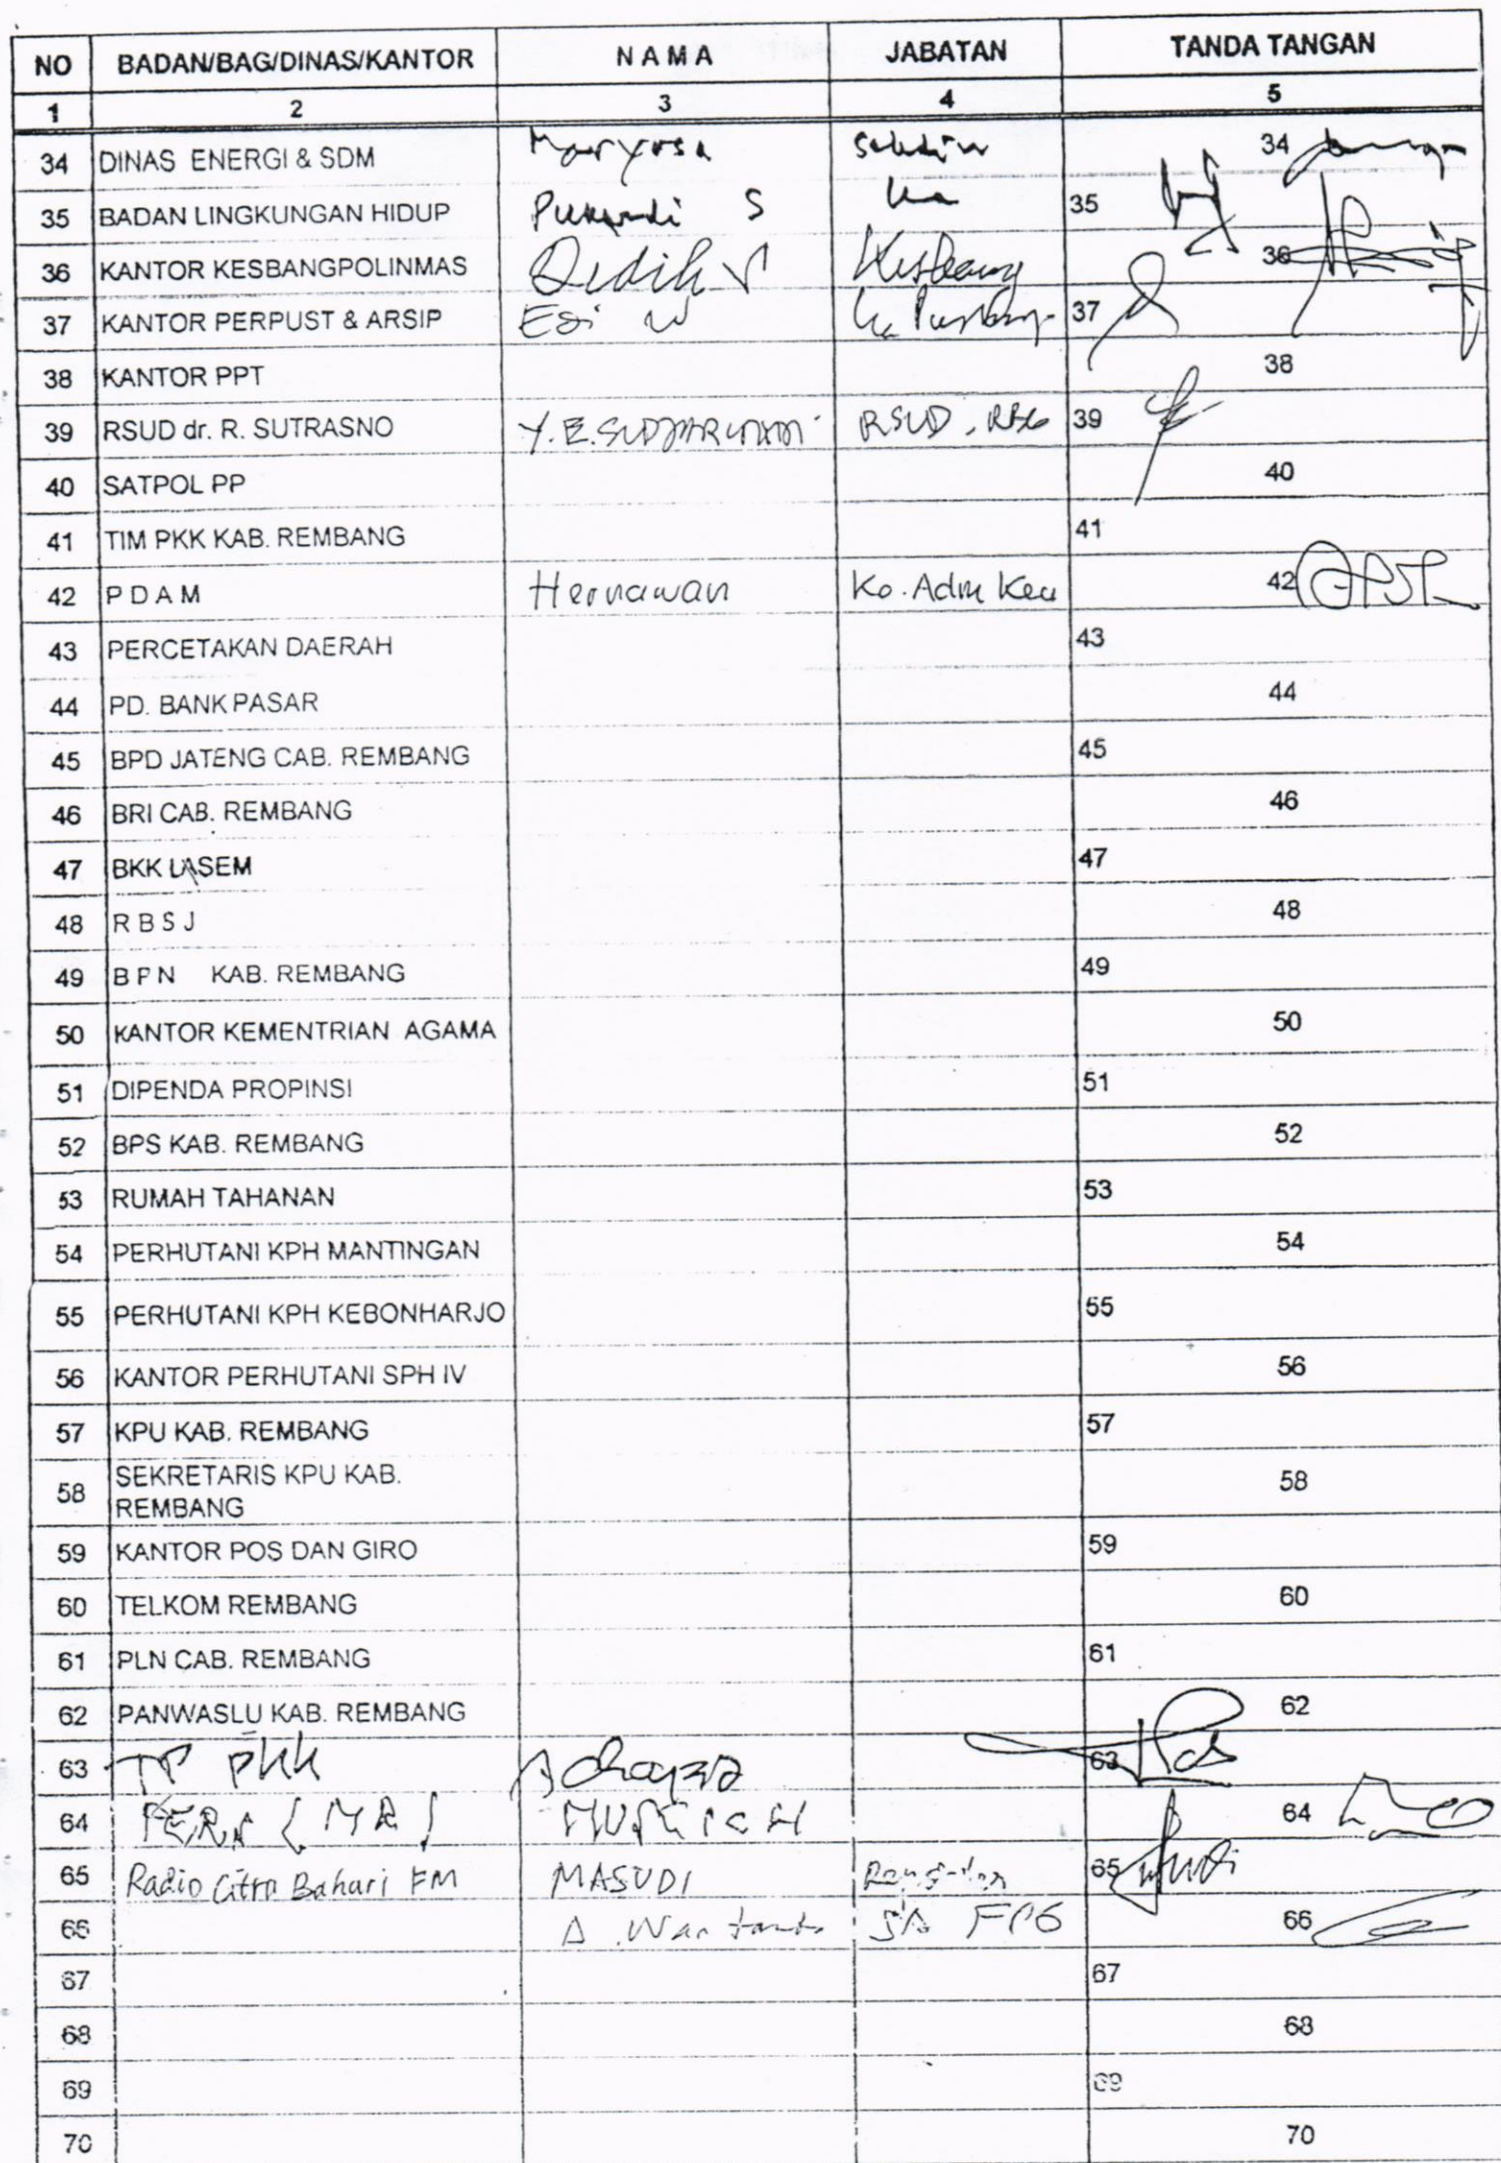 NO BADAN/BAG/DINAS/KANTOR N A M A JABATAN TANDA TANGAN
1 2 3 4 5
34 DINAS ENERGI & SDM 34
35 BADAN LINGKUNGAN HIDUP S Ka 35
36 KANTOR KESBANGPOLINMAS Didik Kesbang 36
37 KANTOR PERPUST & ARSIP Edi W 37
38 KANTOR PPT 38
39 RSUD dr. R. SUTRASNO Y.E. RSUD 39
40 SATPOL PP 40
41 TIM PKK KAB. REMBANG 41
42 P D A M Hernawan Ka. Adm Keu 42
43 PERCETAKAN DAERAH 43
44 PD. BANK PASAR 44
45 BPD JATENG CAB. REMBANG 45
46 BRI CAB. REMBANG 46
47 BKK LASEM 47
48 R B S J 48
49 B P N KAB. REMBANG 49
50 KANTOR KEMENTRIAN AGAMA 50
51 DIPENDA PROPINSI 51
52 BPS KAB. REMBANG 52
53 RUMAH TAHANAN 53
54 PERHUTANI KPH MANTINGAN 54
55 PERHUTANI KPH KEBONHARJO 55
56 KANTOR PERHUTANI SPH IV 56
57 KPU KAB. REMBANG 57
58 SEKRETARIS KPU KAB. 58
REMBANG
59 KANTOR POS DAN GIRO 59
60 TELKOM REMBANG 60
61 PLN CAB. REMBANG 61
62 PANWASLU KAB. REMBANG 62
63 TP PKK 63
64 64
65 Radio Citra Bahari FM MASUDI 65
66 66
67 67
68 68
69 69
70 70